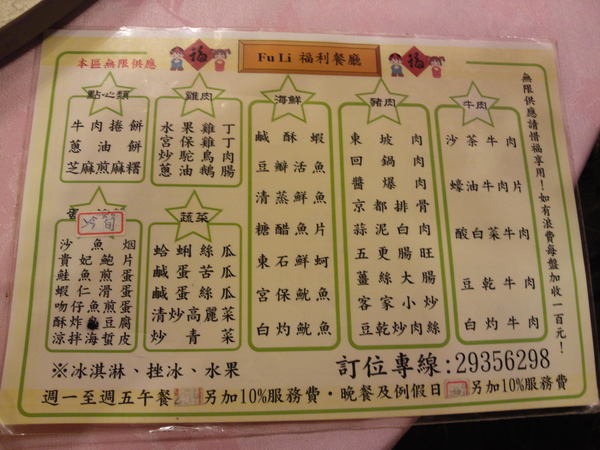 本區無限供應
福
Fu Li 福利餐廳
福
點心類
牛肉捲餅
蔥油餅
芝麻煎麻糬
雞肉
水果雞丁
宮保雞丁
炒鴕鳥肉
蔥油鵝腸
海鮮
鹹酥蝦
豆瓣活魚
清蒸鮮魚
糖醋魚片
東石鮮蚵
宮保魷魚
白灼魷魚
豬肉
東坡肉
回鍋肉
醬爆肉
京都排骨
蒜泥白肉
五更腸旺
薑絲大腸
客家小炒
豆乾炒肉絲
牛肉
沙茶牛肉
蠔油牛肉片
酸白菜牛肉
豆乾牛肉
白灼牛肉
無限供應請惜福享用!如有浪費每盤加收一百元!
冷筍
沙魚烟
貴妃鮑片
鮭魚煎蛋
蝦仁滑蛋
吻仔魚煎蛋
酥炸豆腐
涼拌海蜇皮
蔬菜
蛤蜊絲瓜
鹹蛋苦瓜
鹹蛋絲瓜
清炒高麗菜
炒青菜
※冰淇淋、挫冰、水果
訂位專線:29356298
週一至週五午餐 另加10%服務費·晚餐及例假日 另加10%服務費